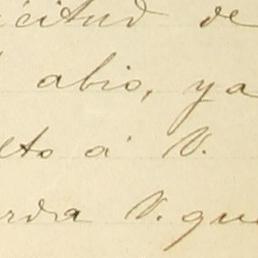 icitud de
abio, ya
lto á V.
erda V. que